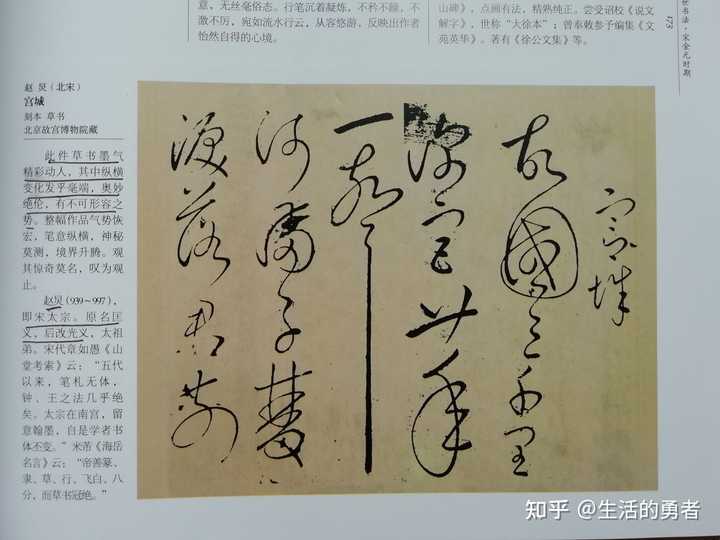 意，无丝毫俗态。行笔沉着凝炼，不矜不躁，不
激不厉，宛如流水行云，从容悠游，反映出作者
怡然自得的心境。
山碑》，点画有法，精熟纯正。尝受诏校《说文
解字》，世称“大徐本”；曾奉敕参予编集《文
苑英华》。著有《徐公文集》等。
173
世书法·宋金元时期
赵 炅（北宋）
宫城
刻本 草书
北京故宫博物院藏
此件草书墨气
精彩动人，其中纵横
变化发乎毫端，奥妙
绝伦，有不可形容之
势。整幅作品气势恢
宏，笔意纵横，神秘
莫测，境界升腾。观
其惊奇莫名，叹为观
止。
赵炅(939～997)，
即宋太宗。原名匡
义，后改光义，太祖
弟。宋代章如愚《山
堂考索》云：“五代
以来，笔札无体，
钟、王之法几乎绝
矣。太宗在南宫，留
意翰墨，自是学者书
体丕变。”米芾《海岳
名言》云：“帝善篆、
隶、草、行、飞白、八
分，而草书冠绝。”
宫城
故國三千里
深宫廿年
一聲
河滿子雙
淚落君前
知乎 @生活的勇者